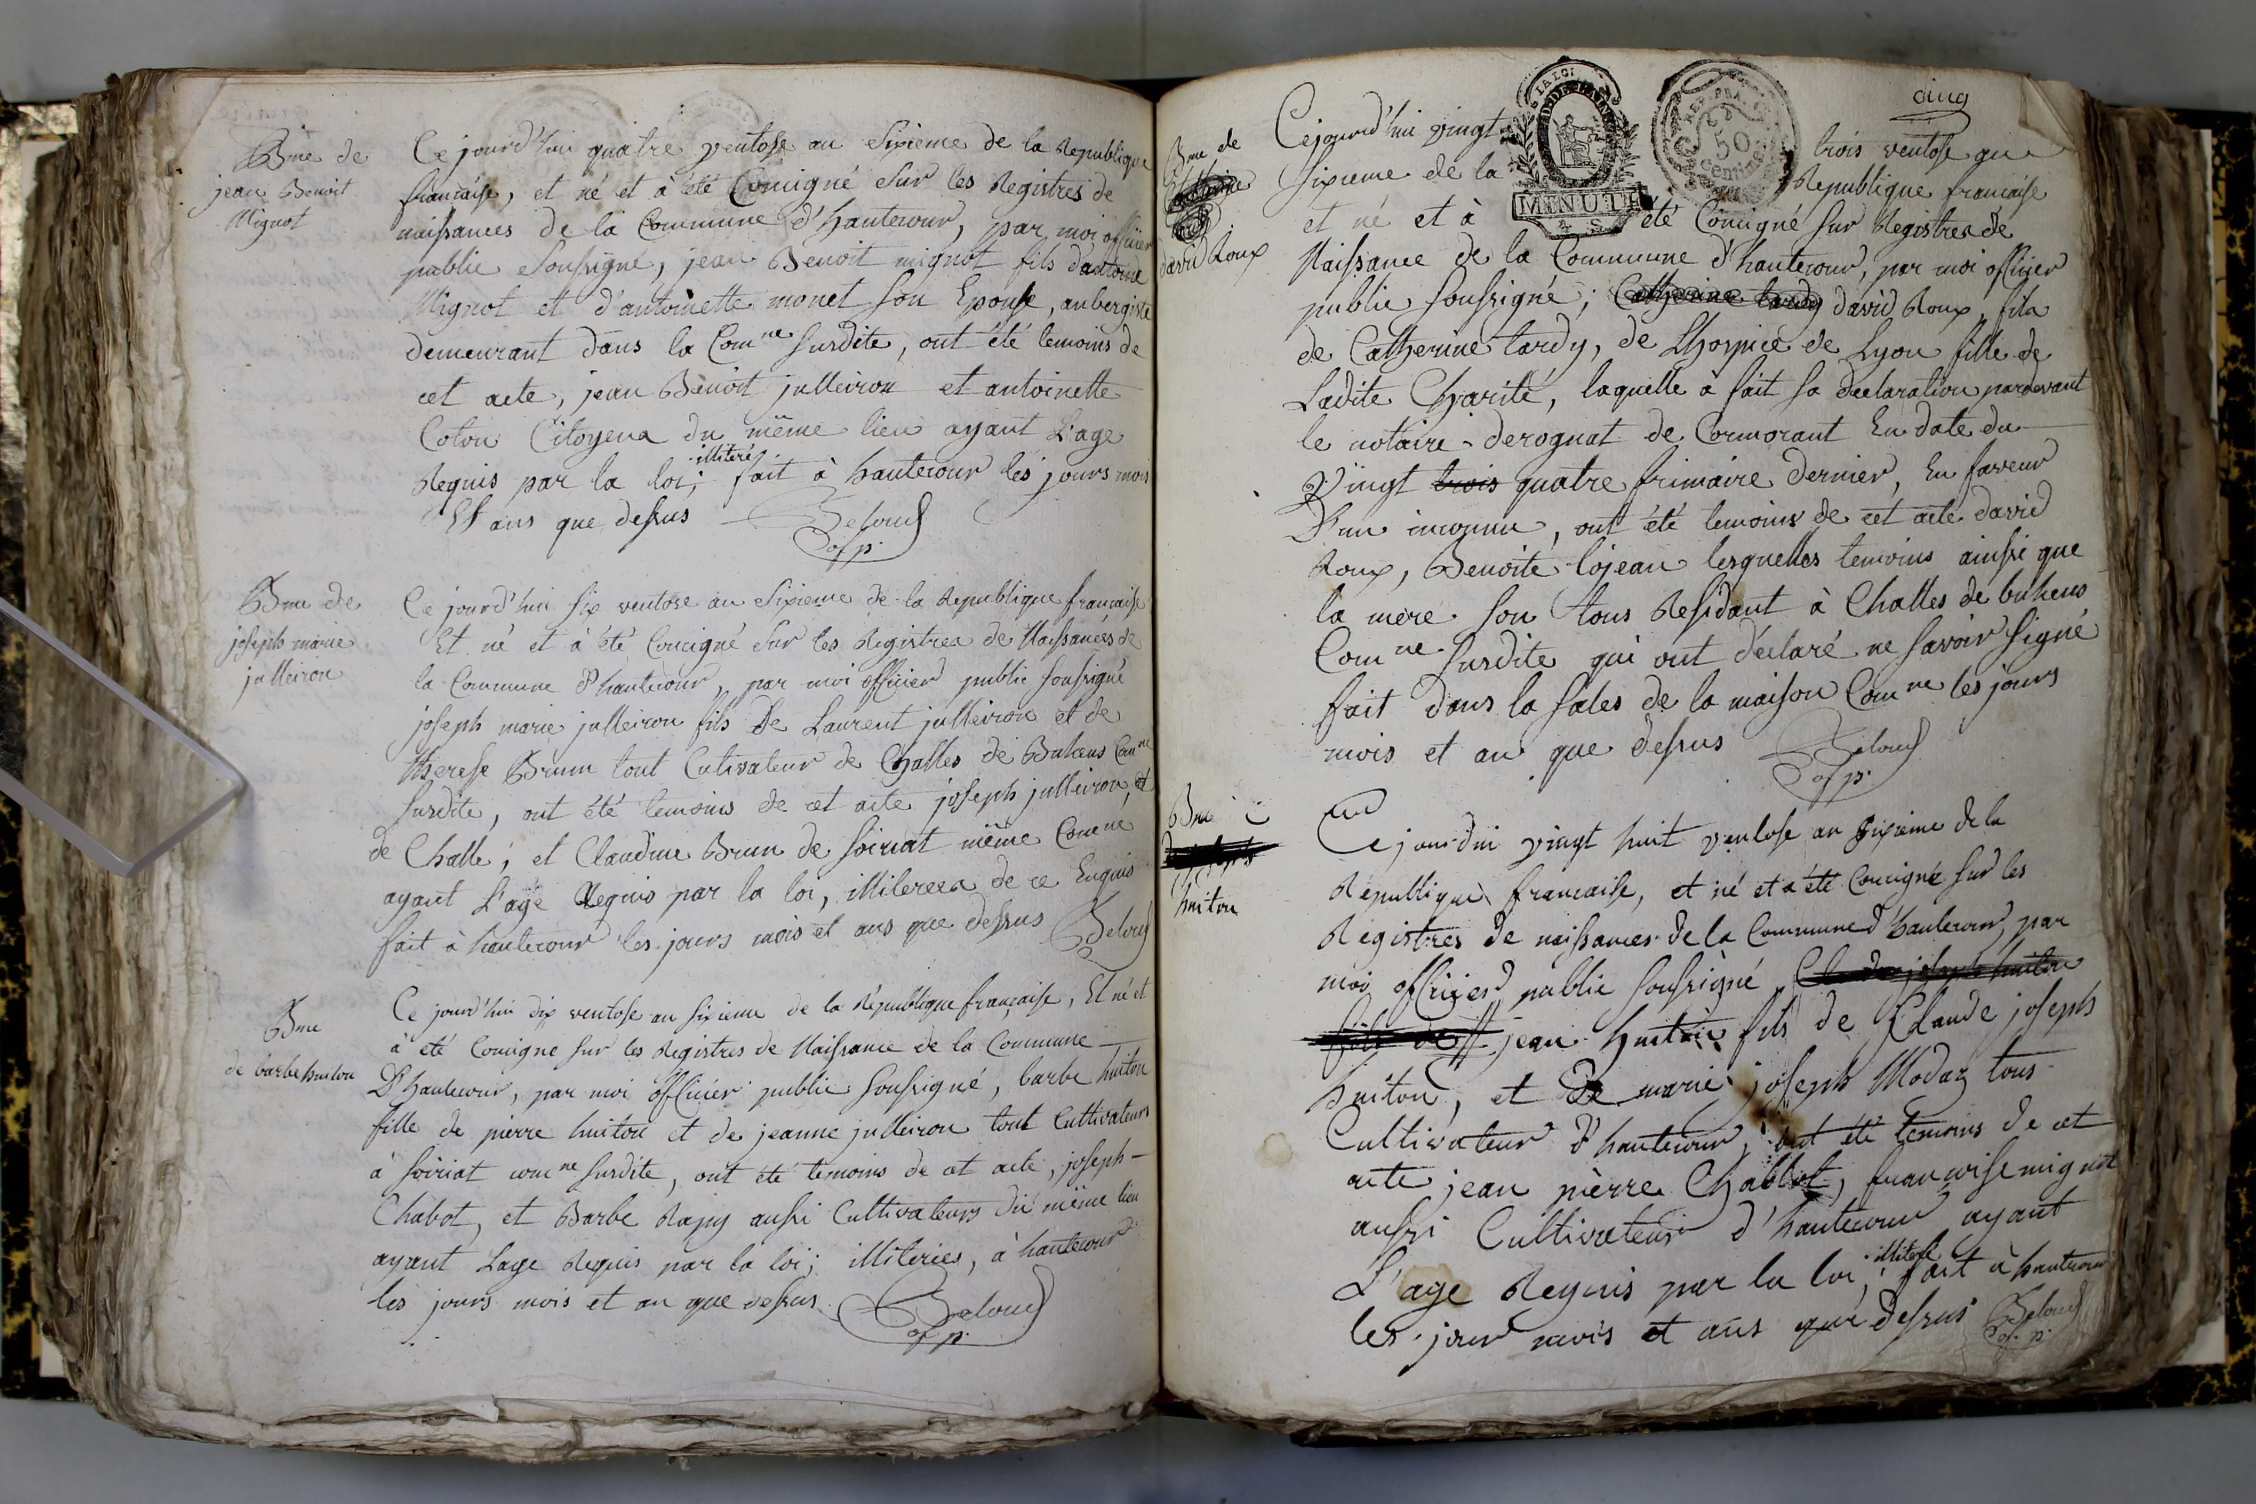 Bme de
jean Benoit
Mignot
Ce jourd'hui quatre ventose an Sixieme de la Republique
francaise, et né et à été Concigné sur les Registres de
naissances de la Commune d'hautecour, par moi officier
public Soussigné, jean Benoit mignot fils dantoine
Mignot et d'antoinette monet son Epouse, aubergiste
demeurant dans la Comne susdite, ont été temoins de
cet acte, jean Benoit julleiron et antoinette
Colon Citoyens du même lieu ayant L'age
Requis par la loi; illiteré fait à hautecour les jours mois
Et ans que dessus Beloud
of. p.
Bme de
joseph marie
julleiron
Ce jourd'hui six ventose an Sixieme de la Republique francaise
Et né et à été Concigné sur les Registres de Naissances de
la Commune d'hautecour, par moi officier public soussigné
joseph marie julleiron fils De Laurent julleiron et de
therese Brun tout Cutivateur de Challes de Buhens Comne
susdite, ont été temoins de cet acte joseph julleiron, et
de Challe, et Claudine Brun de soiriat même Comne
ayant L'age Requis par la loi, illiterees de ce Enquis
fait à hautecour les jours mois et ans que dessus Beloud
Bme
de barbe huiton
Ce jourd'hui dix ventose an sixieme de la République française, Et né et
à été Concigné sur les Registres de Naissance de la Commune
D'hautecour, par moi officier public soussigné, barbe huiton
fille de pierre huiton et de jeanne julleiron tout Cultivateurs
à soiriat comne susdite, ont été temoins de cet acte, joseph
Chabot, et Barbe Rapy aussi Cultivateurs du même lieu
ayant Lage Requis par la loi; illiteries, à hautecour
les jours mois et an que dessus Beloud
of. p.
cinq
MINUTE
REP. FRA.
50
Centimes
Bme de
david Roux
Cejourd'hui vingt trois ventose an
sixieme de la Republique francaise
et né et à été Concigné sur Registres de
Naissance de la Commune d'hautecour, par moi officier
public soussigné; Catherine tardy david Roux fils
de Catherine tardy, de Lhospice de Lyon fille de
Ladite Charité, laquelle à fait sa declaration pardevant
le notaire derognat de Cormorant En date du
Vingt trois quatre frimaire dernier, En faveur
D'un inconnu, ont été temoins de cet acte david
Roux, Benoite lojean lesquelles temoins ainsi que
la mere son tous Residant à Challes de buhens
Comne susdite qui ont déclaré ne savoir signé
fait dans la sales de la maison Comne les jours
mois et an que dessus Beloud
of. p.
Bme
huiton
Ce jourdui vingt huit ventose an sixieme de la
Republique francaise, et né et a été Concigné sur les
Registres de naissances de la Commune d'hautecour, par
moi officier public soussigné Claude joseph huiton
fils de jean huiton fils de Claude joseph
huiton, et De marie joseph Modaz tous
Cultivateur d'hautecour, ont été temoins de cet
acte jean pièrre Chabbot, francoise mignot
aussi Cultivateur d'hautecour ayant
L'age Requis par la loi, illiteré fait à hautecour
les jour mois et ans que dessus Beloud
of. p.